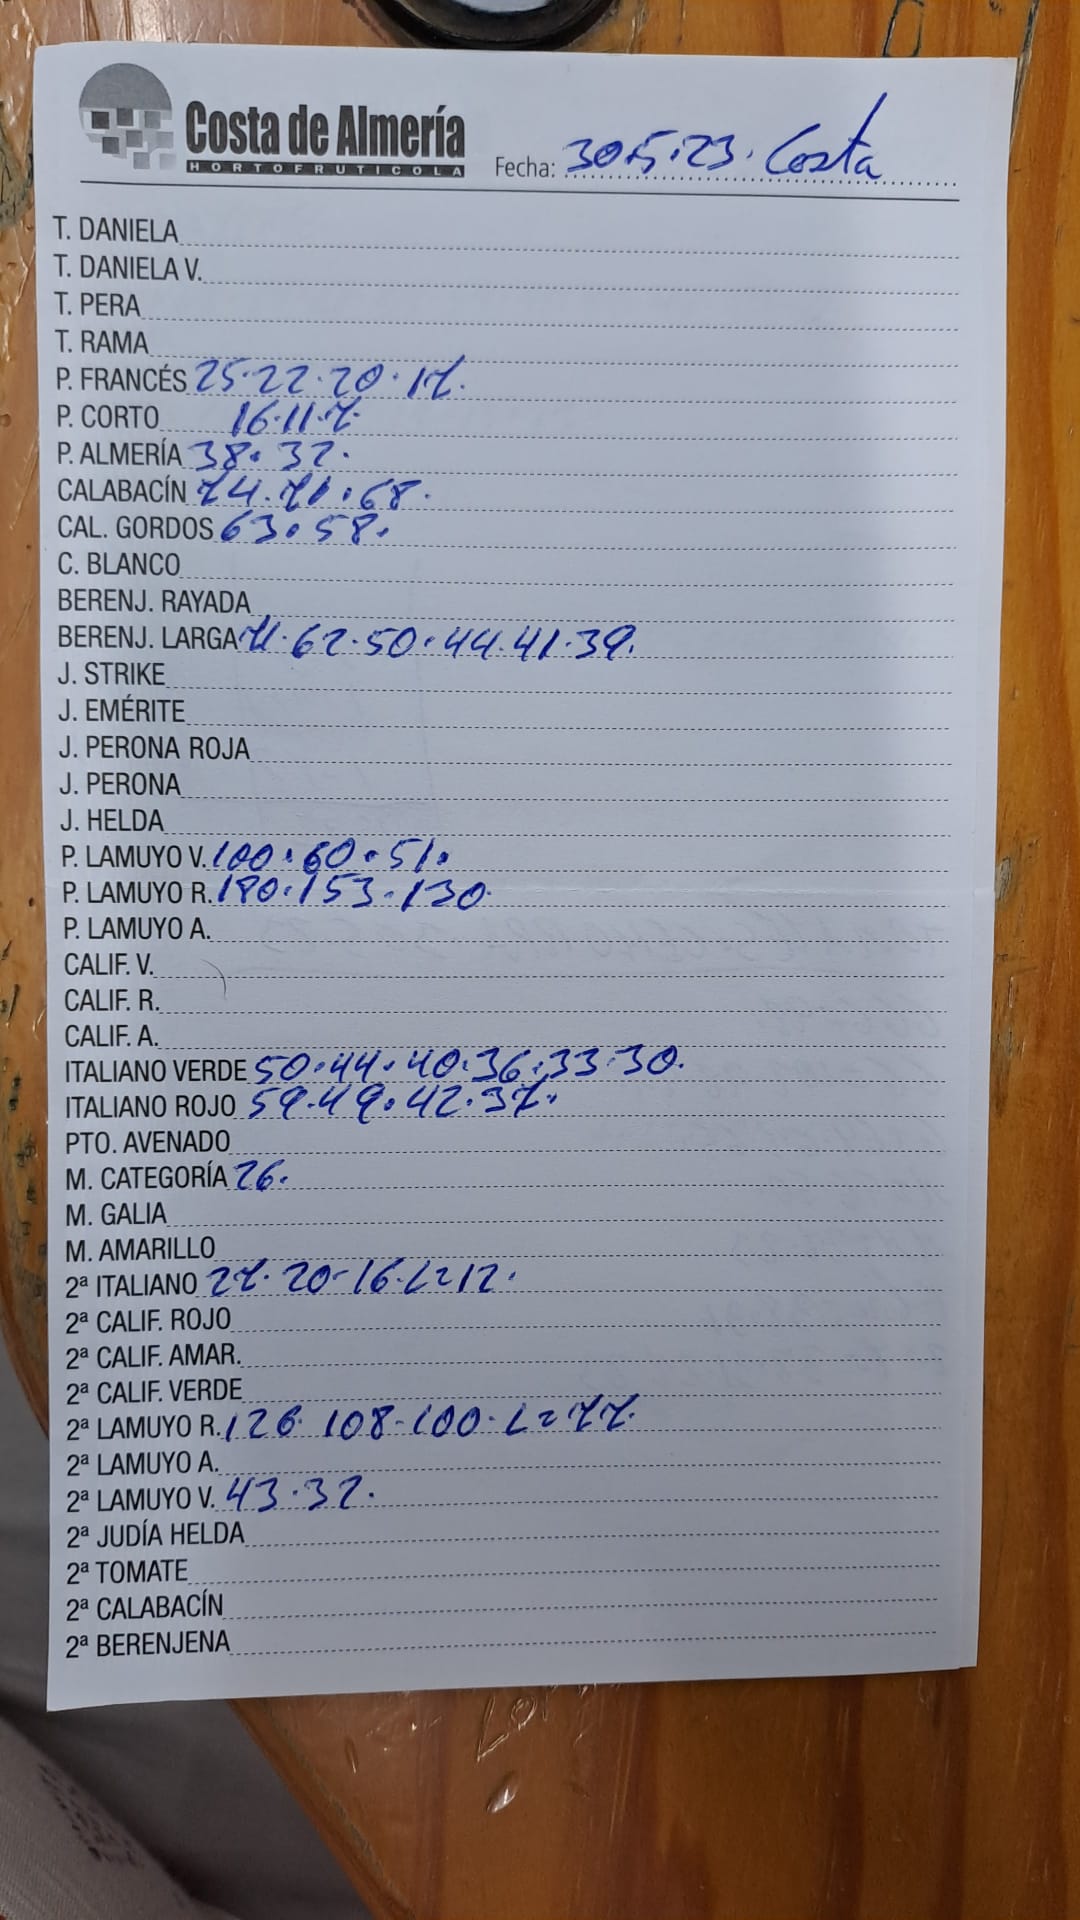 Costa de Almería
HORTOFRUTICOLA
Fecha: 30.5.23. Costa
T. DANIELA
T. DANIELA V.
T. PERA
T. RAMA
P. FRANCÉS 25.22.20.17.
P. CORTO 16.11.7.
P. ALMERÍA 38.32.
CALABACÍN 74.71.68.
CAL. GORDOS 63.58.
C. BLANCO
BERENJ. RAYADA
BERENJ. LARGA 71.62.50.44.41.39.
J. STRIKE
J. EMÉRITE
J. PERONA ROJA
J. PERONA
J. HELDA
P. LAMUYO V. 100.60.51.
P. LAMUYO R. 180.153.130.
P. LAMUYO A.
CALIF. V.
CALIF. R.
CALIF. A.
ITALIANO VERDE 50.44.40.36.33.30.
ITALIANO ROJO 59.49.42.37.
PTO. AVENADO
M. CATEGORÍA 26.
M. GALIA
M. AMARILLO
2ª ITALIANO 27.20-16.L=12.
2ª CALIF. ROJO
2ª CALIF. AMAR.
2ª CALIF. VERDE
2ª LAMUYO R. 126.108-100.L=77.
2ª LAMUYO A.
2ª LAMUYO V. 43.32.
2ª JUDÍA HELDA
2ª TOMATE
2ª CALABACÍN
2ª BERENJENA